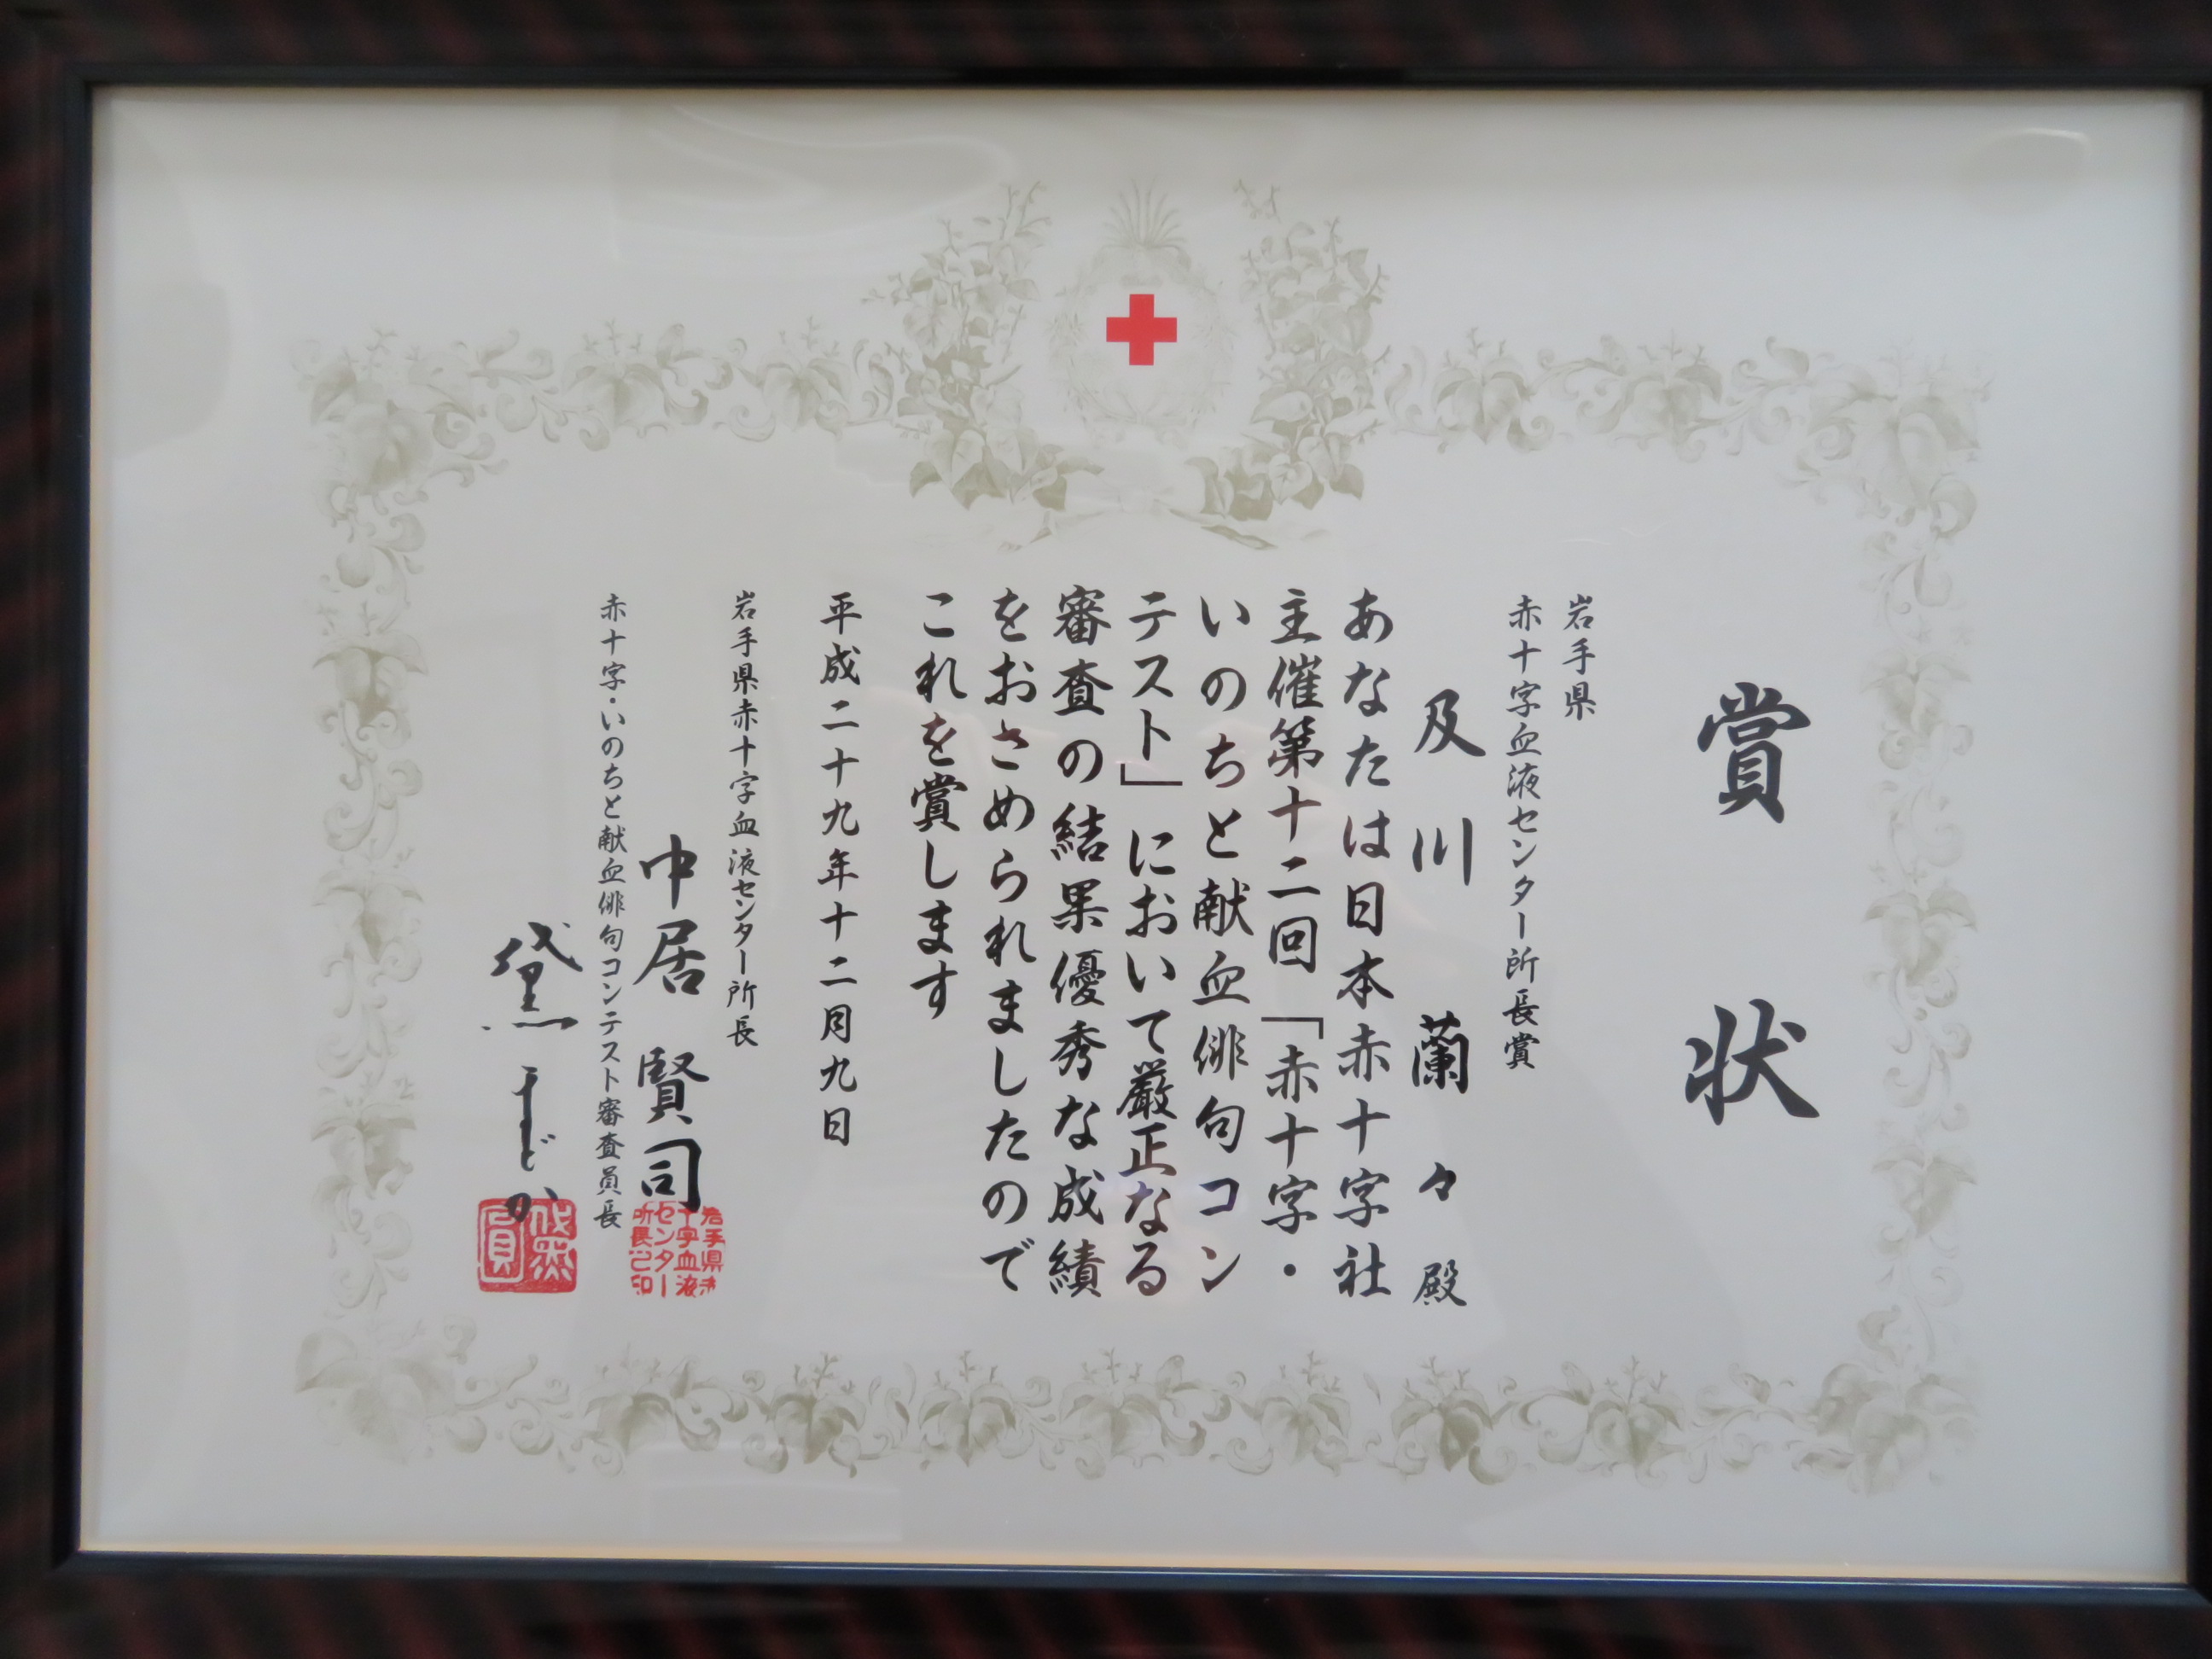 賞状
岩手県
赤十字血液センター所長賞
及川 蘭々 殿
あなたは日本赤十字社
主催第十二回「赤十字・
いのちと献血俳句コン
テスト」において厳正なる
審査の結果優秀な成績
をおさめられましたので
これを賞します
平成二十九年十二月九日
岩手県赤十字血液センター所長
中居 賢司
岩手県赤
十字血液
センター
所長之印
赤十字・いのちと献血俳句コンテスト審査員長
黛 まどか